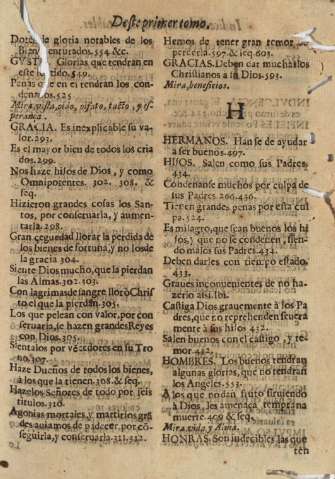 Deste primer tomo.
Dotes de gloria notables de los
Bienaventurados. 554 &c.
GVSTO. Glorias que tendran en
este sentido. 549.
Penas que en el tendran los con-
denados. 525
Mira, vista, oido, olfato, tacto, y es-
perança.
GRACIA. Es inexplicable su va-
lor. 293.
Es el mayor bien de todos los cria
dos. 299.
Nos haze hijos de Dios, y como
Omnipotentes. 302. 308. &
seq.
Hizieron grandes cosas los San-
tos, por conseruarla, y aumen-
tarla. 298.
Gran ceguedad llorar la perdida de
los bienes de fortuna, y no los de
la gracia 304.
Siente Dios mucho, que la pierdan
las Almas. 302. 103.
Con lagrimas de sangre lloró Chris
to el que la pierdan. 305.
Los que pelean con valor, por con
seruarla, se hazen grandes Reyes
con Dios. 305.
Sientalos por vécedores en su Tro
no. 307.
Haze Dueños de todos los bienes,
à los que la tienen. 308. & seq.
Hazelos Señores de todo por seis
titulos. 310.
Agonias mortales, y martirios grã
des auiamos de padecer, por cõ-
seguirla, y conseruarla. 311. 312.
Hemos de tener gran temor de
perderla. 597. & seq. 603.
GRACIAS. Deben dar muchas los
Christianos a su Dios. 593.
Mira, beneficios.
H
HERMANOS. Han se de ayudar
a ser buenos. 497.
HIJOS. Salen como sus Padres.
434.
Condenanse muchos por culpa de
sus Padres 266. 430.
Tienen grandes penas por esta cul
pa. 524.
Es milagro, que sean buenos los hi
jos, y que no se condenen, sien-
do malos sus Padres. 434.
Deben darles con tiempo estado.
433.
Graues inconuenientes de no ha-
zerlo assi. ibi.
Castiga Dios grauemente à los Pa
dres, que no reprehenden seuera
mente à sus hijos 432.
Salen buenos con el castigo, y te-
mor. 432.
HOMBRES. Los buenos tendran
algunas glorias, que no tendran
los Angeles. 553.
A los que no dan fruto siruiendo
à Dios, les amenaça temprana
muerte. 409 & seq.
Mira, vida, y Alma.
HONRAS. Son indecibles las que
ten